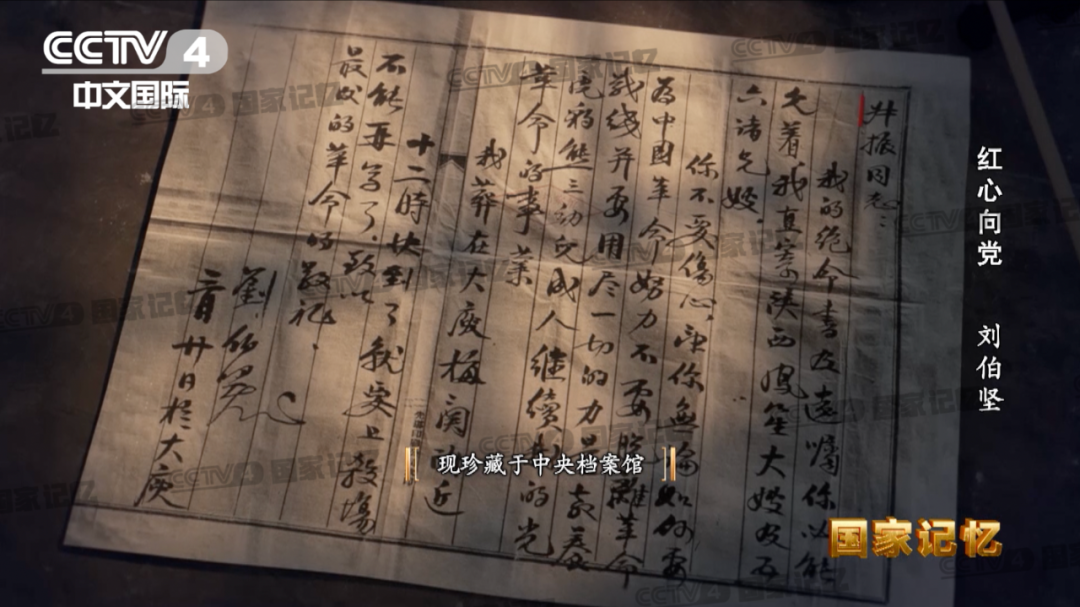 CCTV 4
中文国际
叔振同志:
我的绝命書及遺囑你必能
見着我直寄陝西鳳笙大嫂及五
六諸兄嫂.
你不要傷心,望你無論如何要
為中國革命努力不要脱離革命
戰綫并要用尽一切的力量教養
虎豹熊三幼兒成人继續我的光
革命的事業
我葬在大庾梅関附近
十二時快到了就要上殺場
不能再写了.致以
最后的革命的敬礼.
劉伯堅
三月廿日於大庾
红心向党 刘伯坚
现珍藏于中央档案馆
国家记忆